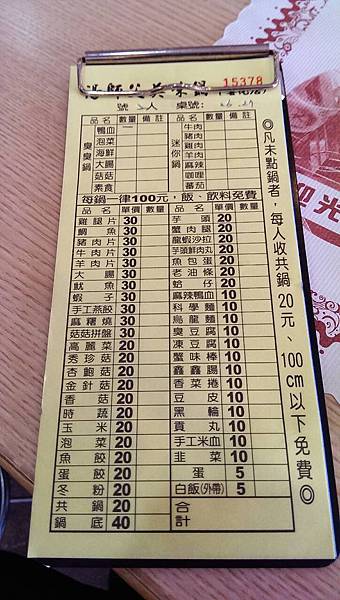 15378
號 人 桌號:
品名 數量 備註 品名 數量 備註
臭臭鍋
鴨血
泡菜
海鮮
大腸
菇菇
素食
迷你鍋
牛肉
豬肉
雞肉
羊肉
麻辣
咖哩
蕃茄
每鍋一律100元，飯、飲料免費
品名 單價 數量 品名 單價 數量
雞腿片 30 芋頭 20
鯛魚 30 蟹肉腿 20
豬肉片 30 龍蝦沙拉 20
牛肉片 30 芋頭鮮肉丸 20
羊肉片 30 魚包蛋 20
大腸 30 老油條 20
魷魚 30 蛤仔 20
蝦子 30 麻辣鴨血 10
手工燕餃 30 科學麵 10
麻糬燒 30 烏龍麵 10
菇菇拼盤 30 臭豆腐 10
高麗菜 20 凍豆腐 10
秀珍菇 20 蟹味棒 10
杏鮑菇 20 鑫鑫腸 10
金針菇 20 香菜捲 10
香菇 20 豆皮 10
時蔬 20 黑輪 10
玉米 20 貢丸 10
泡菜 20 手工米血 10
魚餃 20 韭菜 10
蛋餃 20 蛋 5
冬粉 20 白飯(外帶) 5
共鍋 20 合計
鍋底 40
◎凡未點鍋者，每人收共鍋20元、100cm以下免費◎